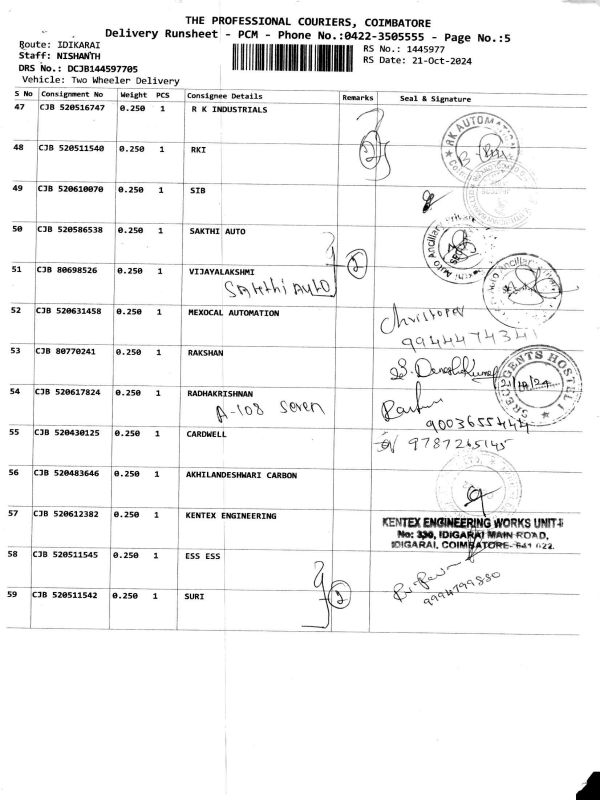 THE PROFESSIONAL COURIERS, COIMBATORE
Delivery Runsheet - PCM - Phone No.:0422-3505555 - Page No.:5
Route: IDIKARAI RS No.: 1445977
Staff: NISHANTH RS Date: 21-Oct-2024
DRS No.: DCJB144597705
Vehicle: Two Wheeler Delivery
S No Consignment No Weight PCS Consignee Details Remarks Seal & Signature
47 CJB 520516747 0.250 1 R K INDUSTRIALS
2
RK AUTOMATION
48 CJB 520511540 0.250 1 RKI
49 CJB 520610070 0.250 1 SIB
50 CJB 520586538 0.250 1 SAKTHI AUTO
2
51 CJB 80698526 0.250 1 VIJAYALAKSHMI
Sakthi Auto
52 CJB 520631458 0.250 1 MEXOCAL AUTOMATION
Christoper
9944474341
53 CJB 80770241 0.250 1 RAKSHAN
SREC GENTS HOSTEL
21/10/24
54 CJB 520617824 0.250 1 RADHAKRISHNAN
A-108 seven
9003655444
55 CJB 520430125 0.250 1 CARDWELL
9787265145
56 CJB 520483646 0.250 1 AKHILANDESHWARI CARBON
57 CJB 520612382 0.250 1 KENTEX ENGINEERING
KENTEX ENGINEERING WORKS UNIT-I
No: 330, IDIGARAI MAIN ROAD,
IDIGARAI, COIMBATORE- 641 022.
58 CJB 520511545 0.250 1 ESS ESS
2
59 CJB 520511542 0.250 1 SURI
9994799880